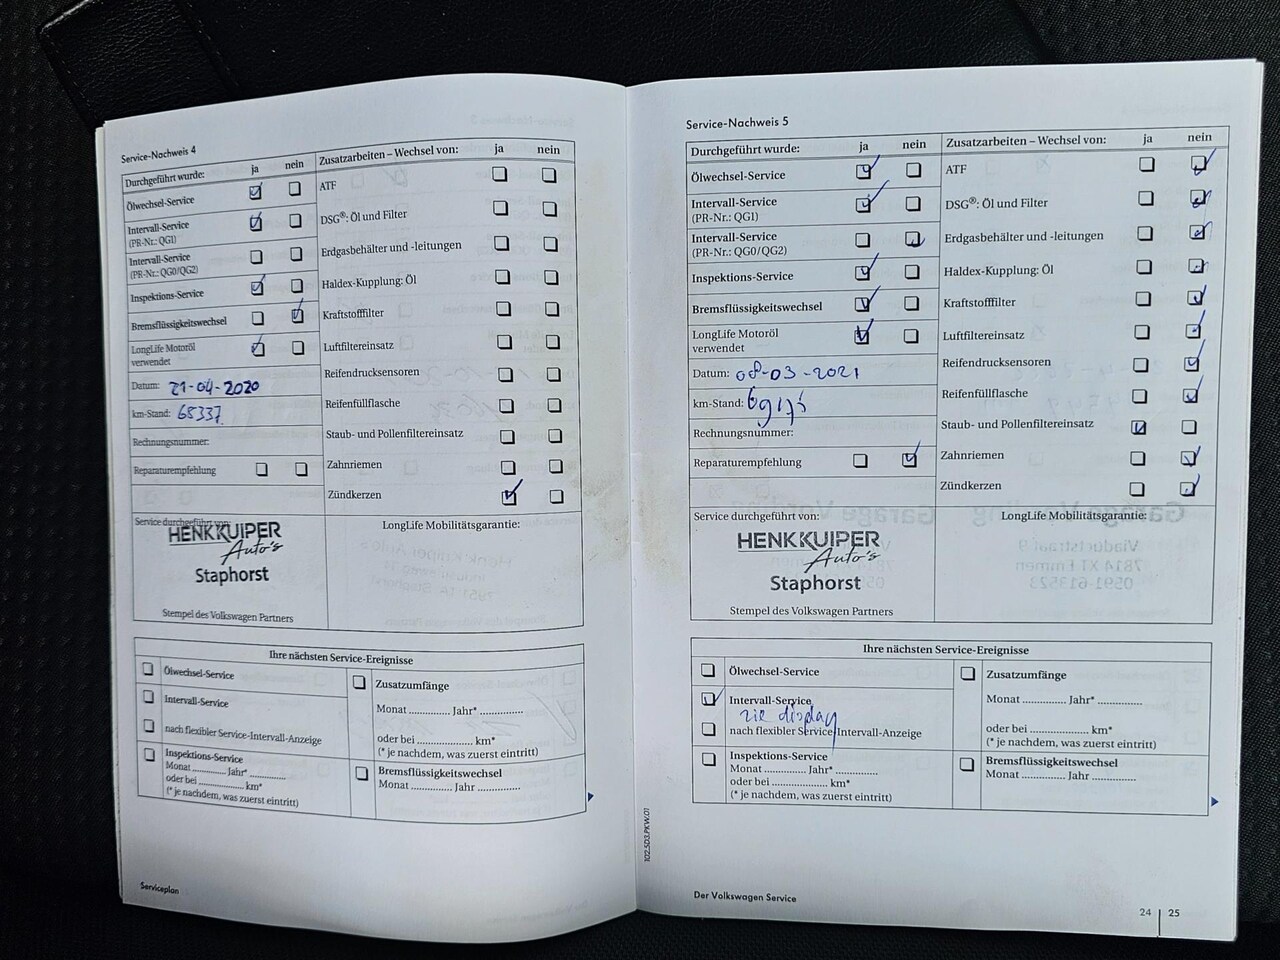 Service-Nachweis 4
Durchgeführt wurde: ja nein
Ölwechsel-Service
Intervall-Service
(PR-Nr.: QG1)
Intervall-Service
(PR-Nr.: QG0/QG2)
Inspektions-Service
Bremsflüssigkeitswechsel
LongLife Motoröl
verwendet
Datum: 21-04-2020
km-Stand: 65337
Rechnungsnummer:
Reparaturempfehlung
Zusatzarbeiten – Wechsel von: ja nein
ATF
DSG®: Öl und Filter
Erdgasbehälter und -leitungen
Haldex-Kupplung: Öl
Kraftstofffilter
Luftfiltereinsatz
Reifendrucksensoren
Reifenfüllflasche
Staub- und Pollenfiltereinsatz
Zahnriemen
Zündkerzen
Service durchgeführt von:
HENK KUIPER
Auto's
Staphorst
Stempel des Volkswagen Partners
LongLife Mobilitätsgarantie:
Ihre nächsten Service-Ereignisse
Ölwechsel-Service
Intervall-Service
nach flexibler Service-Intervall-Anzeige
Inspektions-Service
Monat ............ Jahr* ..............
oder bei .................... km*
(* je nachdem, was zuerst eintritt)
Zusatzumfänge
Monat .............. Jahr* ..............
oder bei .................... km*
(* je nachdem, was zuerst eintritt)
Bremsflüssigkeitswechsel
Monat .............. Jahr ..............
Serviceplan
Service-Nachweis 5
Durchgeführt wurde: ja nein
Ölwechsel-Service
Intervall-Service
(PR-Nr.: QG1)
Intervall-Service
(PR-Nr.: QG0/QG2)
Inspektions-Service
Bremsflüssigkeitswechsel
LongLife Motoröl
verwendet
Datum: 08-03-2021
km-Stand:
Rechnungsnummer:
Reparaturempfehlung
Zusatzarbeiten – Wechsel von: ja nein
ATF
DSG®: Öl und Filter
Erdgasbehälter und -leitungen
Haldex-Kupplung: Öl
Kraftstofffilter
Luftfiltereinsatz
Reifendrucksensoren
Reifenfüllflasche
Staub- und Pollenfiltereinsatz
Zahnriemen
Zündkerzen
Service durchgeführt von:
HENK KUIPER
Auto's
Staphorst
Stempel des Volkswagen Partners
LongLife Mobilitätsgarantie:
Ihre nächsten Service-Ereignisse
Ölwechsel-Service
Intervall-Service
zie display
nach flexibler Service-Intervall-Anzeige
Inspektions-Service
Monat .............. Jahr* ..............
oder bei .................... km*
(* je nachdem, was zuerst eintritt)
Zusatzumfänge
Monat .............. Jahr* ..............
oder bei .................... km*
(* je nachdem, was zuerst eintritt)
Bremsflüssigkeitswechsel
Monat .............. Jahr ..............
102.5D3.PKW.01
Der Volkswagen Service
24 | 25